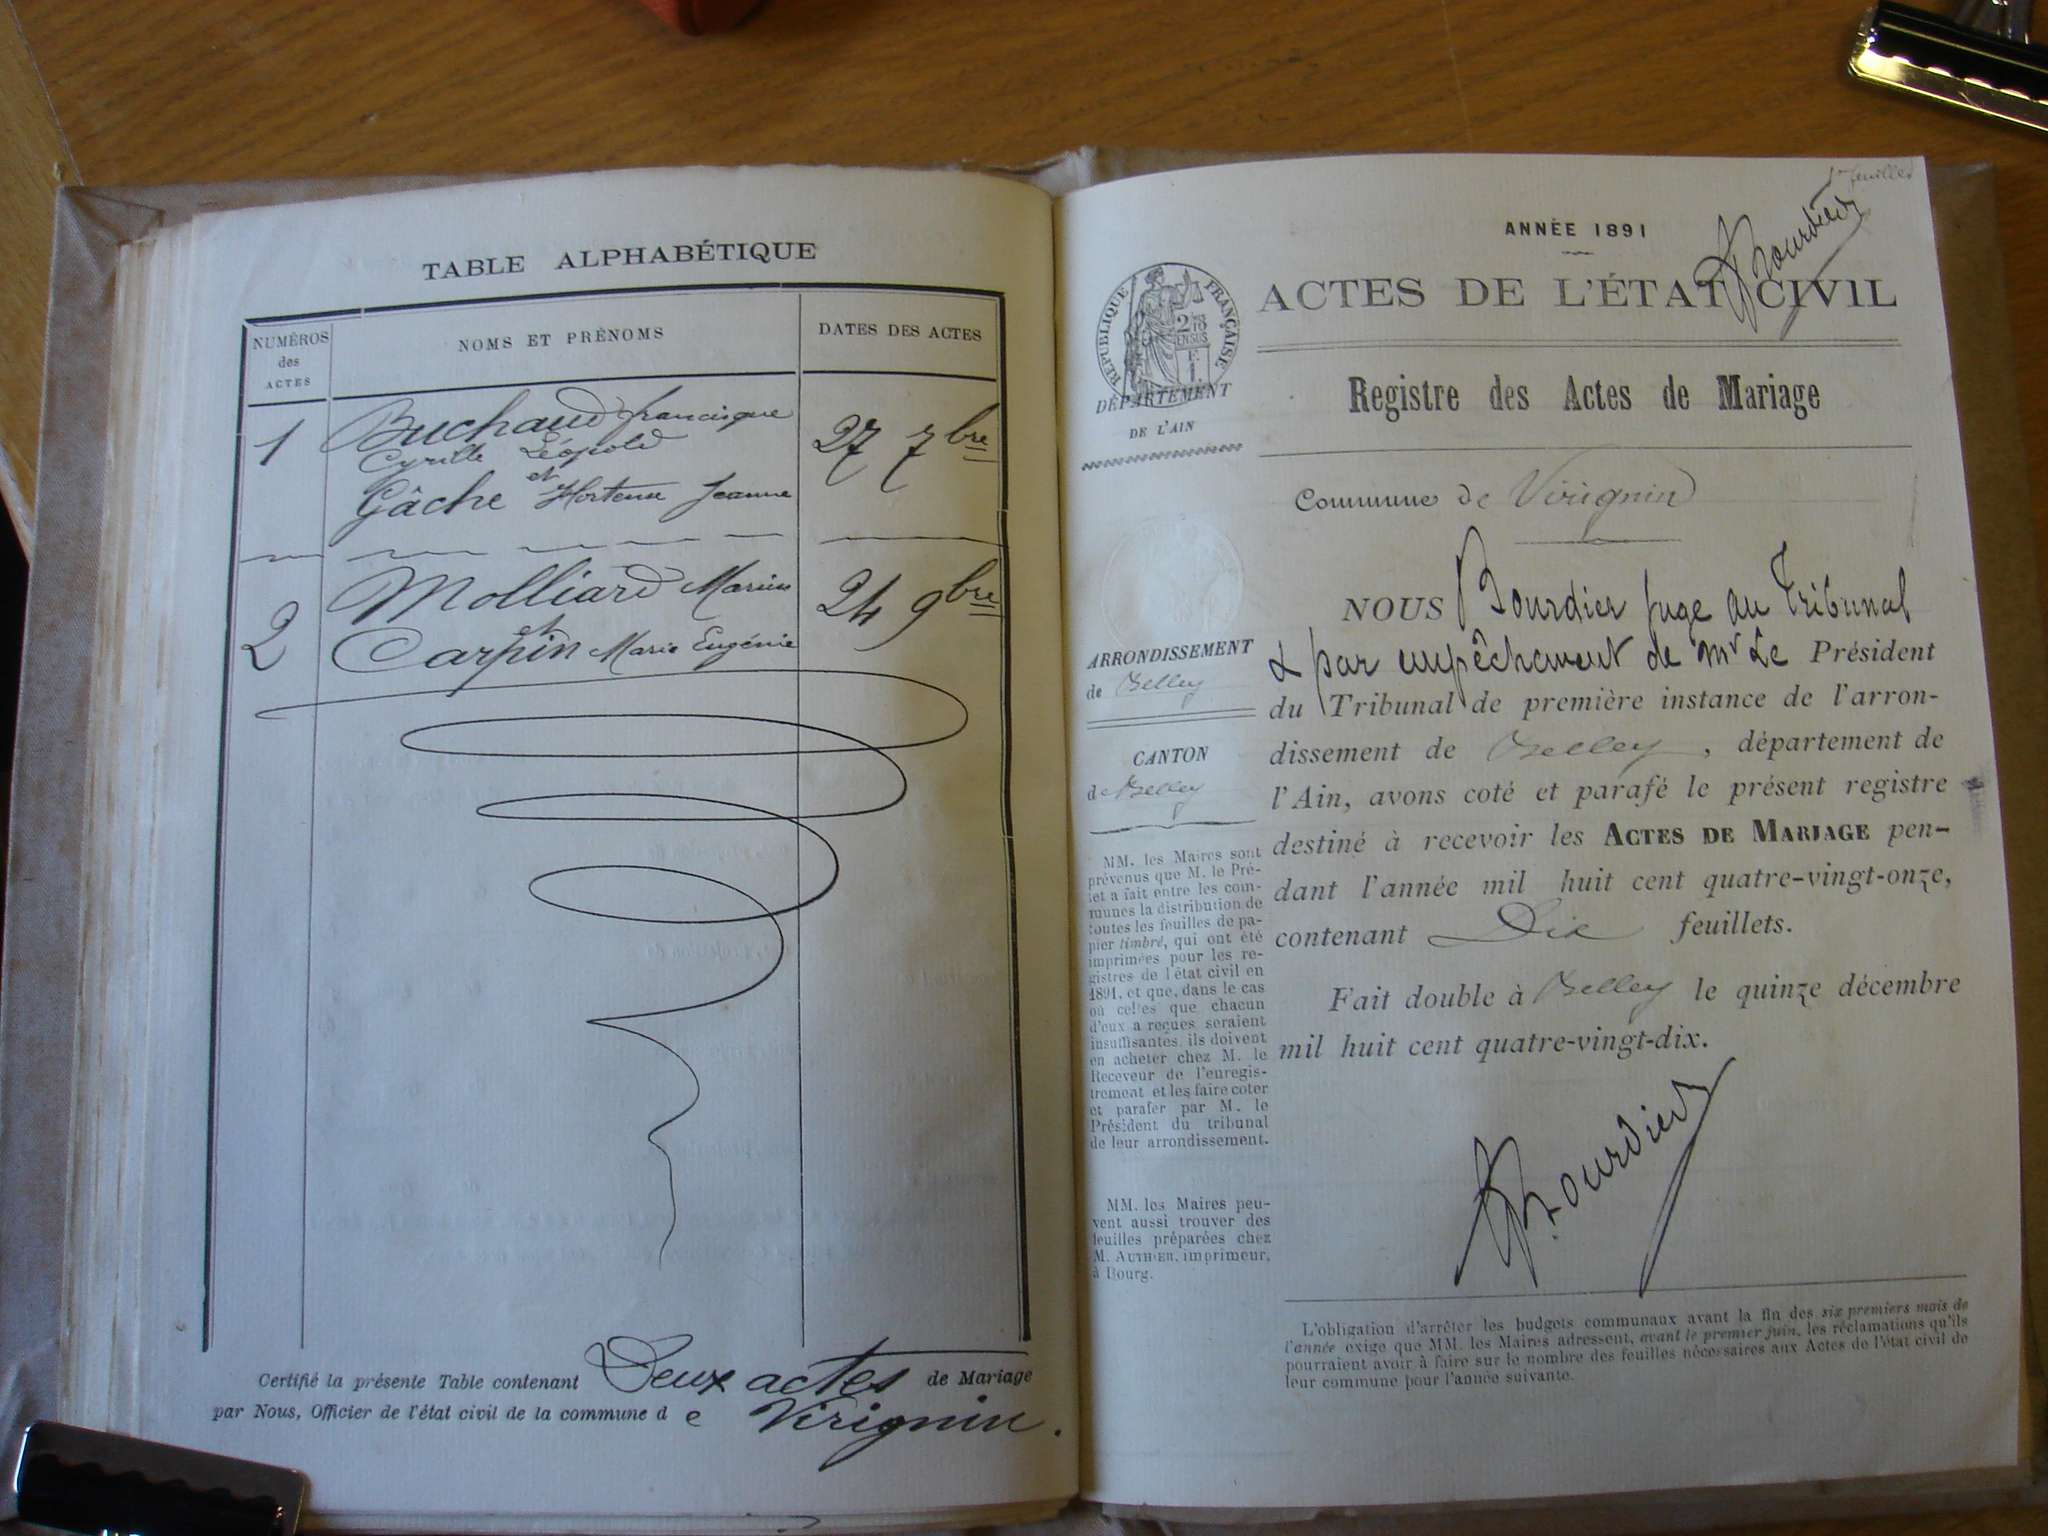 TABLE ALPHABÉTIQUE
NUMÉROS
des
ACTES
NOMS ET PRÉNOMS
DATES DES ACTES
1
Buchaud Francisque
Cyrille Léopold
et
Gâche Hortense Jeanne
27 7bre
2
Molliard Marius
et
Carpin Marie Eugénie
24 9bre
Certifié la présente Table contenant Deux actes de Mariage
par Nous, Officier de l'état civil de la commune d e Virignin.
1er feuillet
Bourdier
ANNÉE 1891
ACTES DE L'ÉTAT CIVIL
RÉPUBLIQUE FRANÇAISE
DÉPARTEMENT
DE L'AIN
Registre des Actes de Mariage
Commune de Virignin
ARRONDISSEMENT
de Belley
CANTON
de Belley
MM. les Maires sont
prévenus que M. le Pré-
fet a fait entre les com-
munes la distribution de
toutes les feuilles de pa-
pier timbré, qui ont été
imprimées pour les re-
gistres de l'état civil en
1891, et que, dans le cas
où celles que chacun
d'eux a reçues seraient
insuffisantes, ils doivent
en acheter chez M. le
Receveur de l'enregis-
trement et les faire coter
et parafer par M. le
Président du tribunal
de leur arrondissement.
MM. les Maires peu-
vent aussi trouver des
feuilles préparées chez
M. AUTHIER, imprimeur,
à Bourg.
NOUS Bourdier juge au Tribunal
& par empêchement de Mr Le Président
du Tribunal de première instance de l'arron-
dissement de Belley, département de
l'Ain, avons coté et parafé le présent registre
destiné à recevoir les ACTES DE MARIAGE pen-
dant l'année mil huit cent quatre-vingt-onze,
contenant Dix feuillets.
Fait double à Belley le quinze décembre
mil huit cent quatre-vingt-dix.
Bourdier
L'obligation d'arrêter les budgets communaux avant la fin des six premiers mois de
l'année exige que MM. les Maires adressent, avant le premier juin, les réclamations qu'ils
pourraient avoir à faire sur le nombre des feuilles nécessaires aux Actes de l'état civil de
leur commune pour l'année suivante.